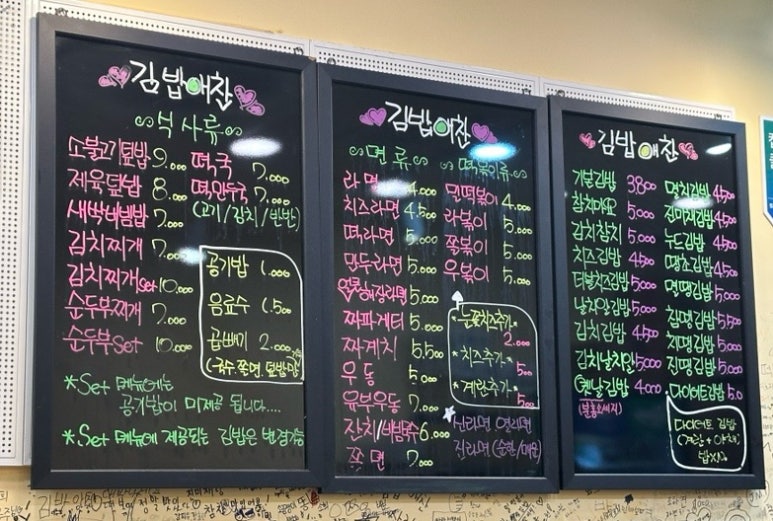 김밥애찬
식사류
소불고기덮밥 9.000
제육덮밥 8.000
새싹비빔밥 7.000
김치찌개 7.000
김치찌개 set 10.000
순두부찌개 7.000
순두부 set 10.000
떡국 7.000
떡만두국 7.000
(고기/김치/반반)
공기밥 1.000
음료수 1.500
곱빼기 2.000
(국수 쫄면 덮밥
*Set 메뉴에는
공기밥이 미제공 됩니다....
*Set 메뉴에 제공되는 김밥은 변경가능
김밥애찬
면류
라면 4.000
치즈라면 4.500
떡라면 4.500
만두라면 5.000
5.000
짜파게티 5.000
짜계치 5.500
우동 5.000
유부우동 7.000
잔치/비빔국수 6.000
쫄면 7.000
떡볶이류
밀떡볶이 4.000
라볶이 5.000
쫄볶이 5.000
우볶이 5.000
*눈꽃치즈추가*
2.000
*치즈추가*
500
*계란추가*
500
신라면 열라면
진라면 (순한/매운)
김밥애찬
기본김밥 3800
참치마요 5000
김치참치 5000
치즈김밥 4500
더블치즈김밥 5000
날치알김밥 5000
김치김밥 4500
김치날치알 5000
옛날김밥 4000
(분홍소세지)
멸치김밥 4500
진미채김밥 4500
누드김밥 4500
땡초김밥 4500
멸땡김밥 5000
참땡김밥 5500
치땡김밥 5000
진땡김밥 5000
다이어트김밥 5.0
다이어트 김밥
(계란+야채)
밥X